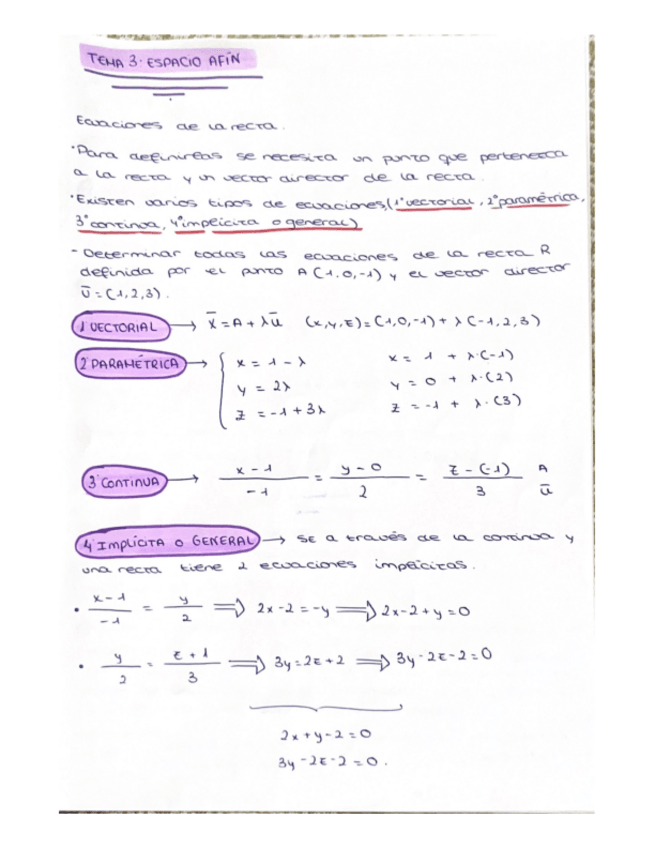 TEMA 3: ESPACIO AFÍN
Ecuaciones de la recta.
·Para definirlas se necesita un punto que pertenezca
a la recta y un vector director de la recta.
·Existen varios tipos de ecuaciones,(1ºvectorial, 2ºparamétrica,
3ºcontinua, 4ºimplícita o general)
- Determinar todas las ecuaciones de la recta R
definida por el punto A(1,0,-1) y el vector director
ū=(1,2,3).
1º VECTORIAL → x̄=A+λū (x,y,z)=(1,0,-1)+λ(-1,2,3)
2º PARAMÉTRICA → { x = 1-λ x = 1 + λ·(-1)
y = 2λ y = 0 + λ·(2)
z = -1+3λ z = -1 + λ·(3)
3º CONTINUA → (x-1)/(-1) = (y-0)/2 = (z-(-1))/3 A ū
4º IMPLÍCITA O GENERAL → SE a través de la continua y
una recta tiene 2 ecuaciones implícitas.
• (x-1)/(-1) = y/2 ⇒ 2x-2=-y ⇒ 2x-2+y=0
• y/2 = (z+1)/3 ⇒ 3y=2z+2 ⇒ 3y-2z-2=0
2x+y-2=0
3y-2z-2=0.